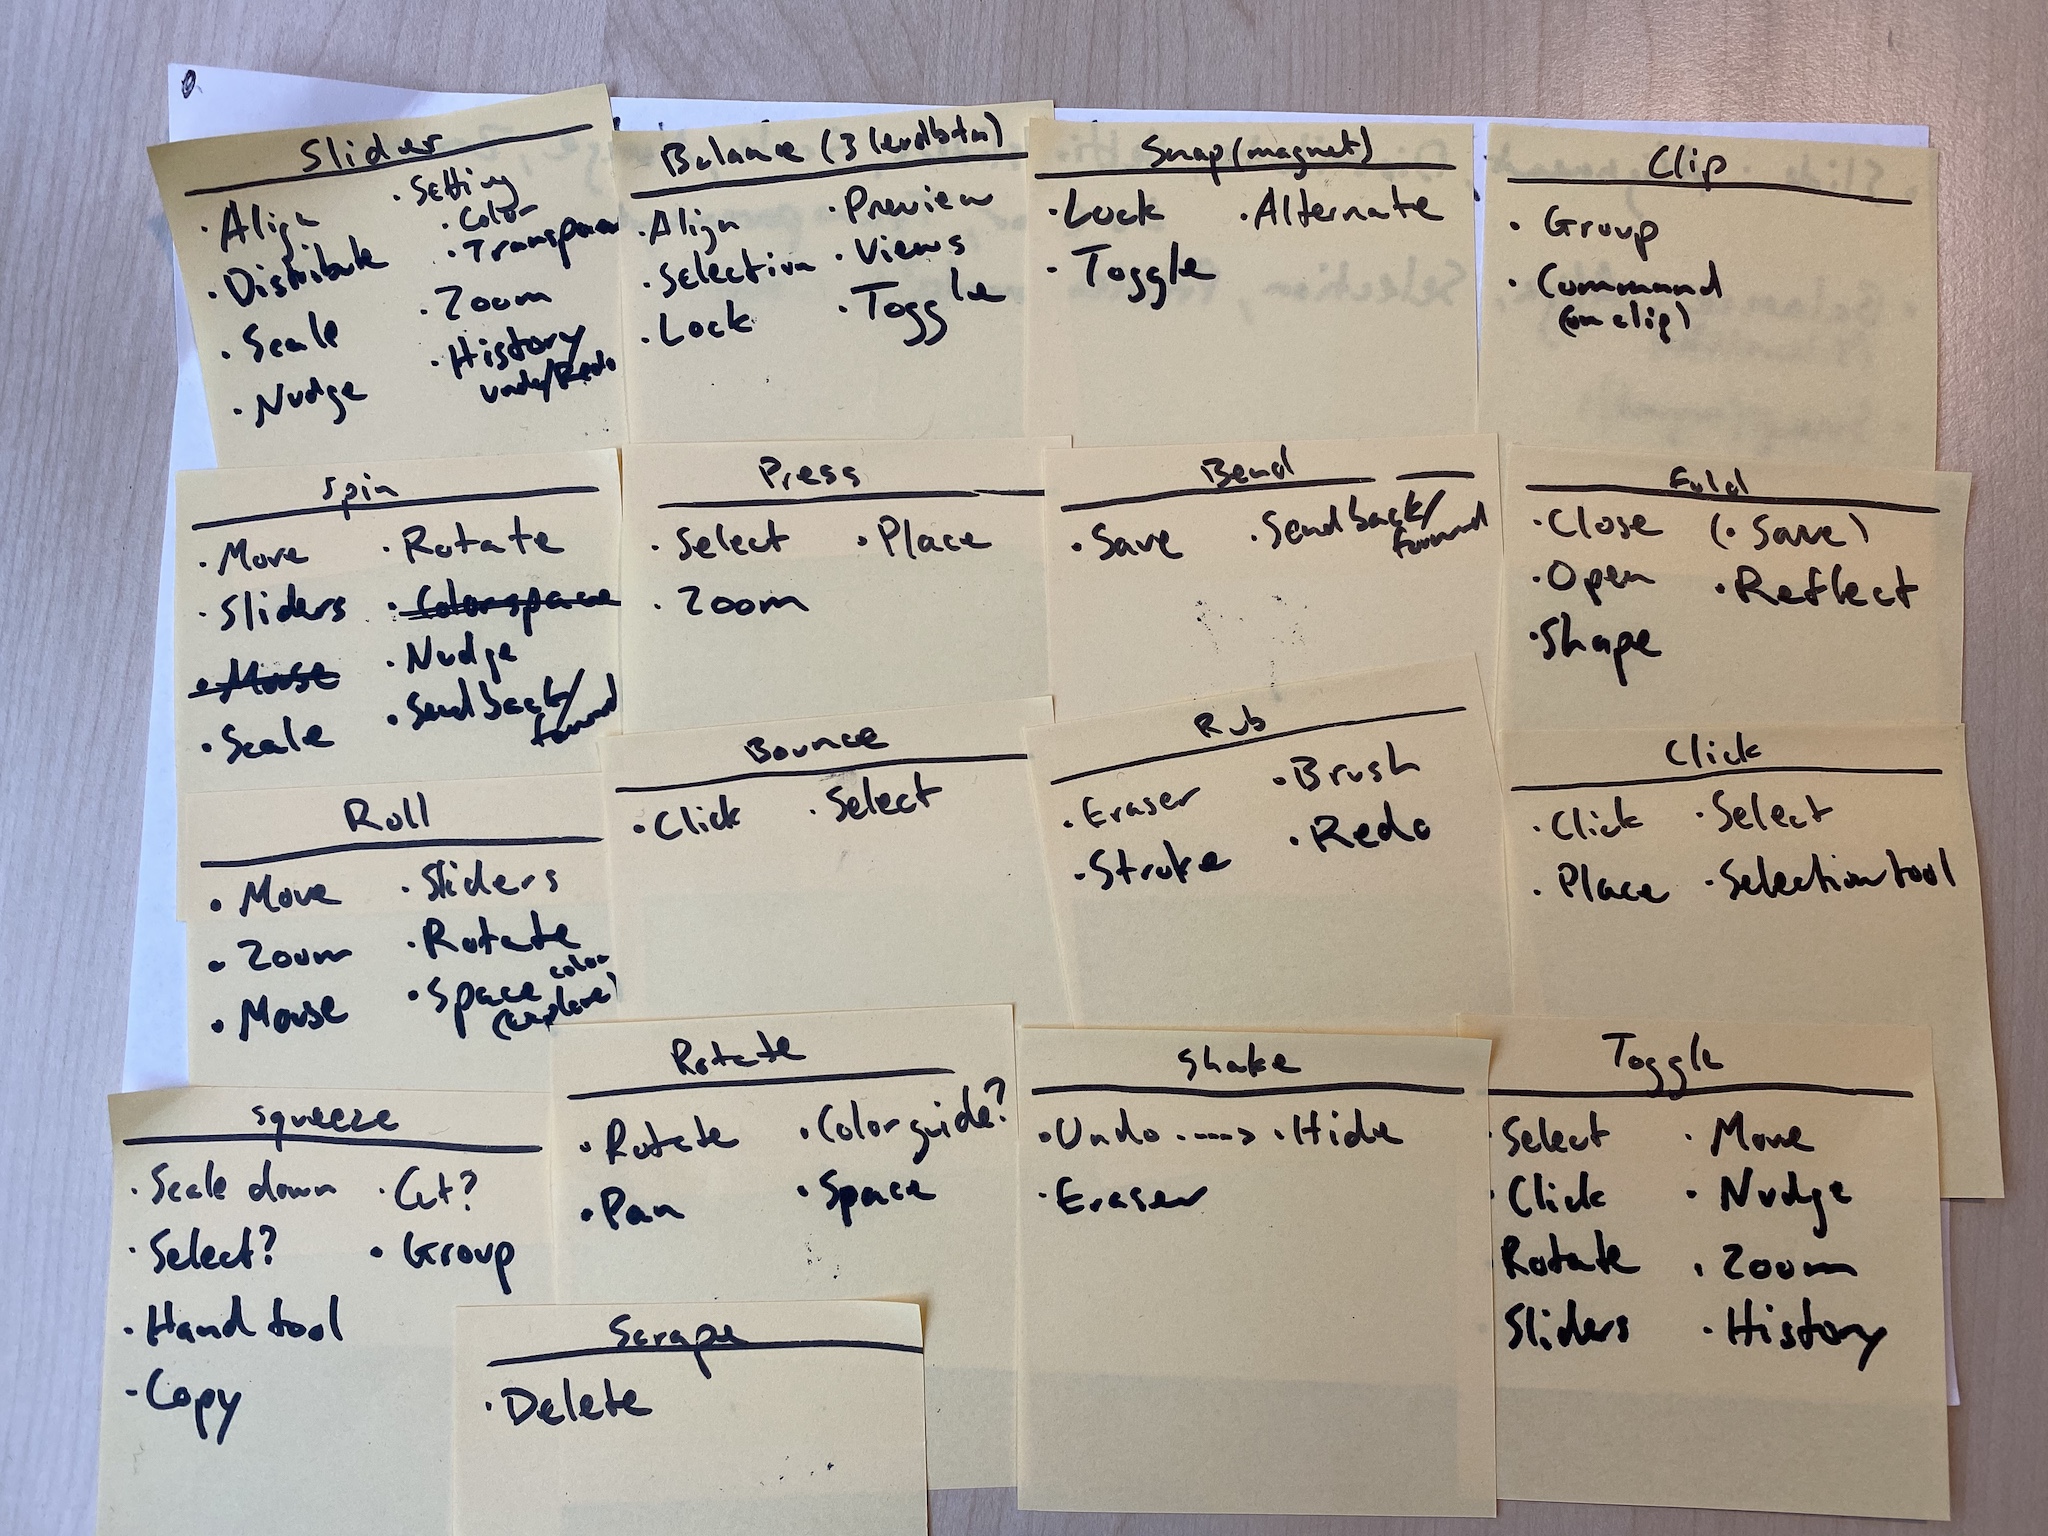 Slider
· Align
· Distribute
· Scale
· Nudge
· Setting
· Color
· Transparen
· Zoom
· History
undo/Redo
Balance (3 levelbtn)
· Align
· Selection
· Lock
· Preview
· Views
· Toggle
Snap (magnet)
· Lock
· Toggle
· Alternate
Clip
· Group
· Command
(on clip)
Spin
· Move
· Sliders
· Mouse
· Scale
· Rotate
· Colorspace
· Nudge
· Send back/
forward
Press
· Select
· Zoom
· Place
Bend
· Save
· Send back/
forward
Fold
· Close
· Open
· Shape
(· Save)
· Reflect
Roll
· Move
· Zoom
· Mouse
· Sliders
· Rotate
· Space color
Bounce
· Click
· Select
Rub
· Eraser
· Stroke
· Brush
· Redo
Click
· Click
· Place
· Select
· Selection tool
Squeeze
· Scale down
· Select?
· Hand tool
· Copy
· Cut?
· Group
Rotate
· Rotate
· Pan
· Color guide?
· Space
Shake
· Undo ----> · Hide
· Eraser
Toggle
· Select
· Click
Rotate
Sliders
· Move
· Nudge
· Zoom
· History
Scrape
· Delete